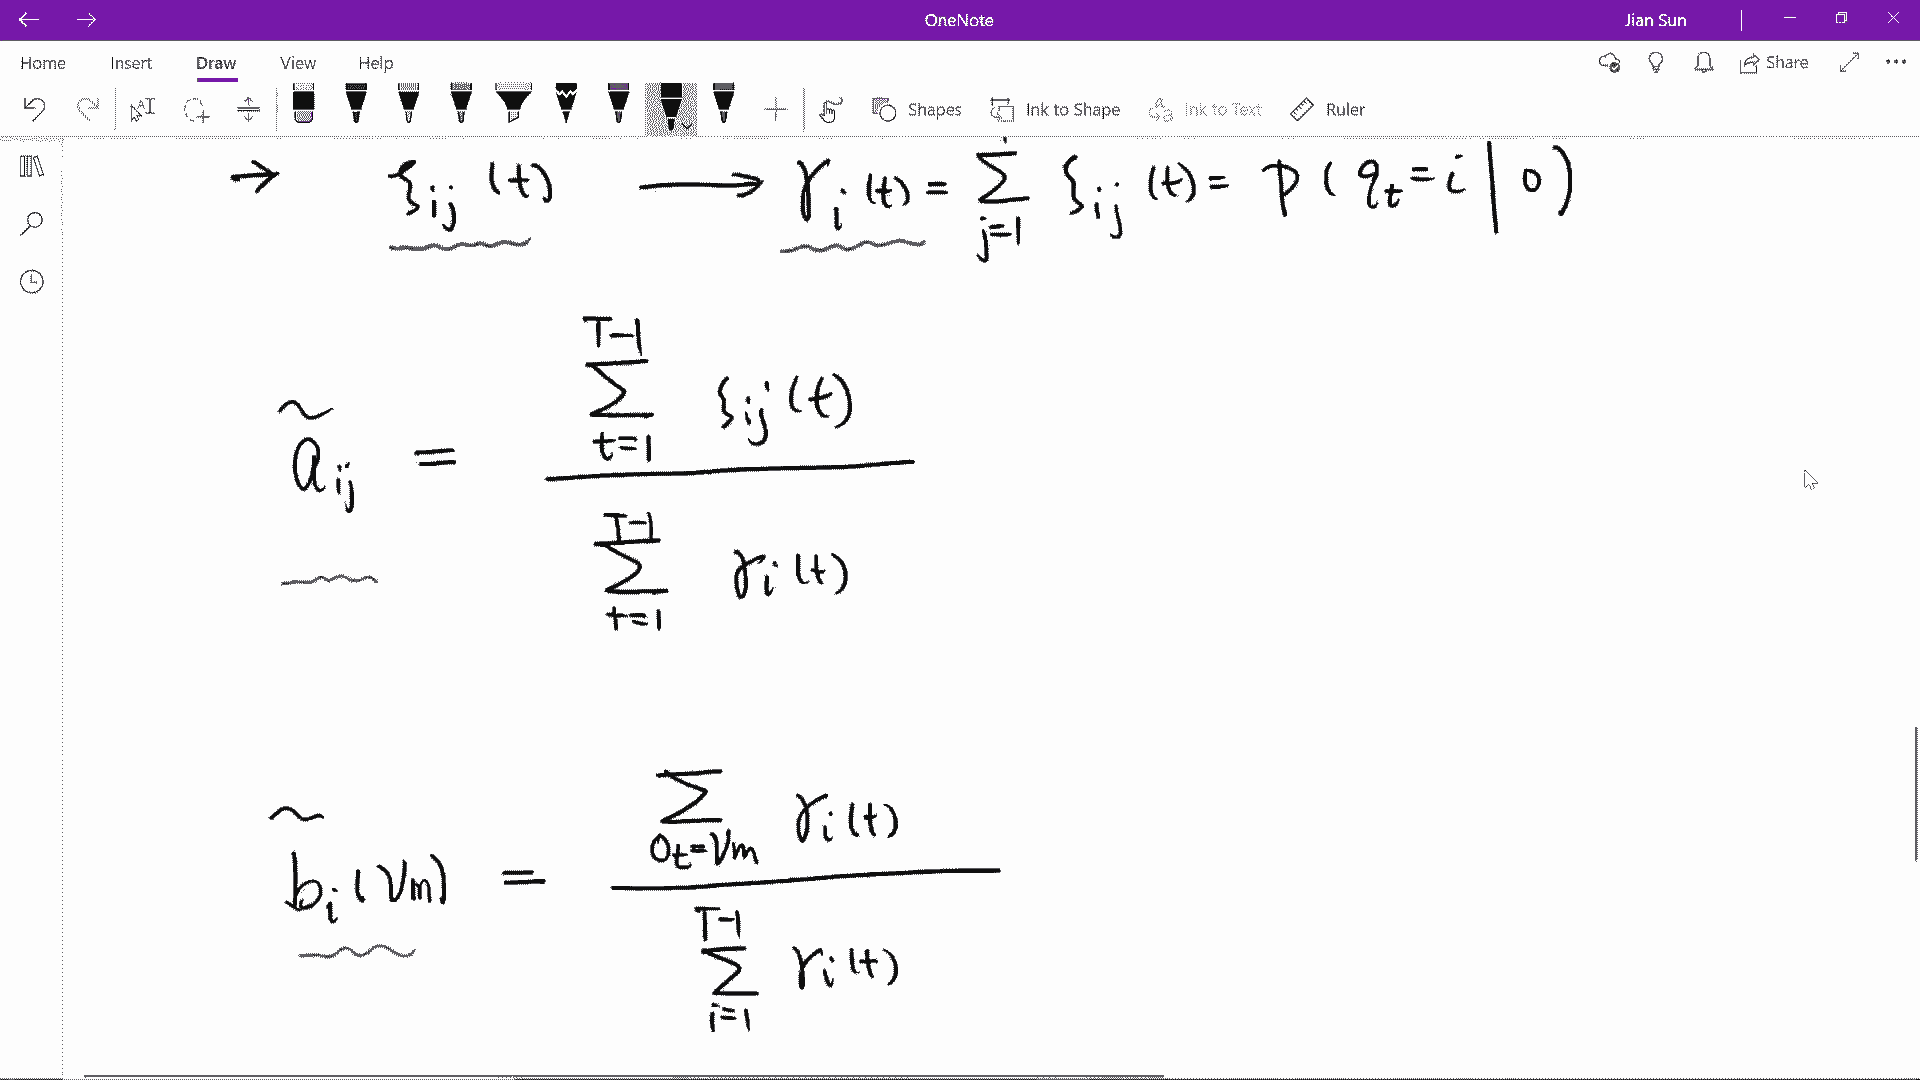 OneNote
Jian Sun
Home Insert Draw View Help
Share
Shapes Ink to Shape Ink to Text Ruler
→ ξij (t) → γi (t) = Σ j=1 ξij (t) = p ( qt = i | O )
ãij = Σ T-1 t=1 ξij (t) / Σ T-1 t=1 γi (t)
b̃i (Vm) = Σ Ot=Vm γi (t) / Σ T-1 i=1 γi (t)